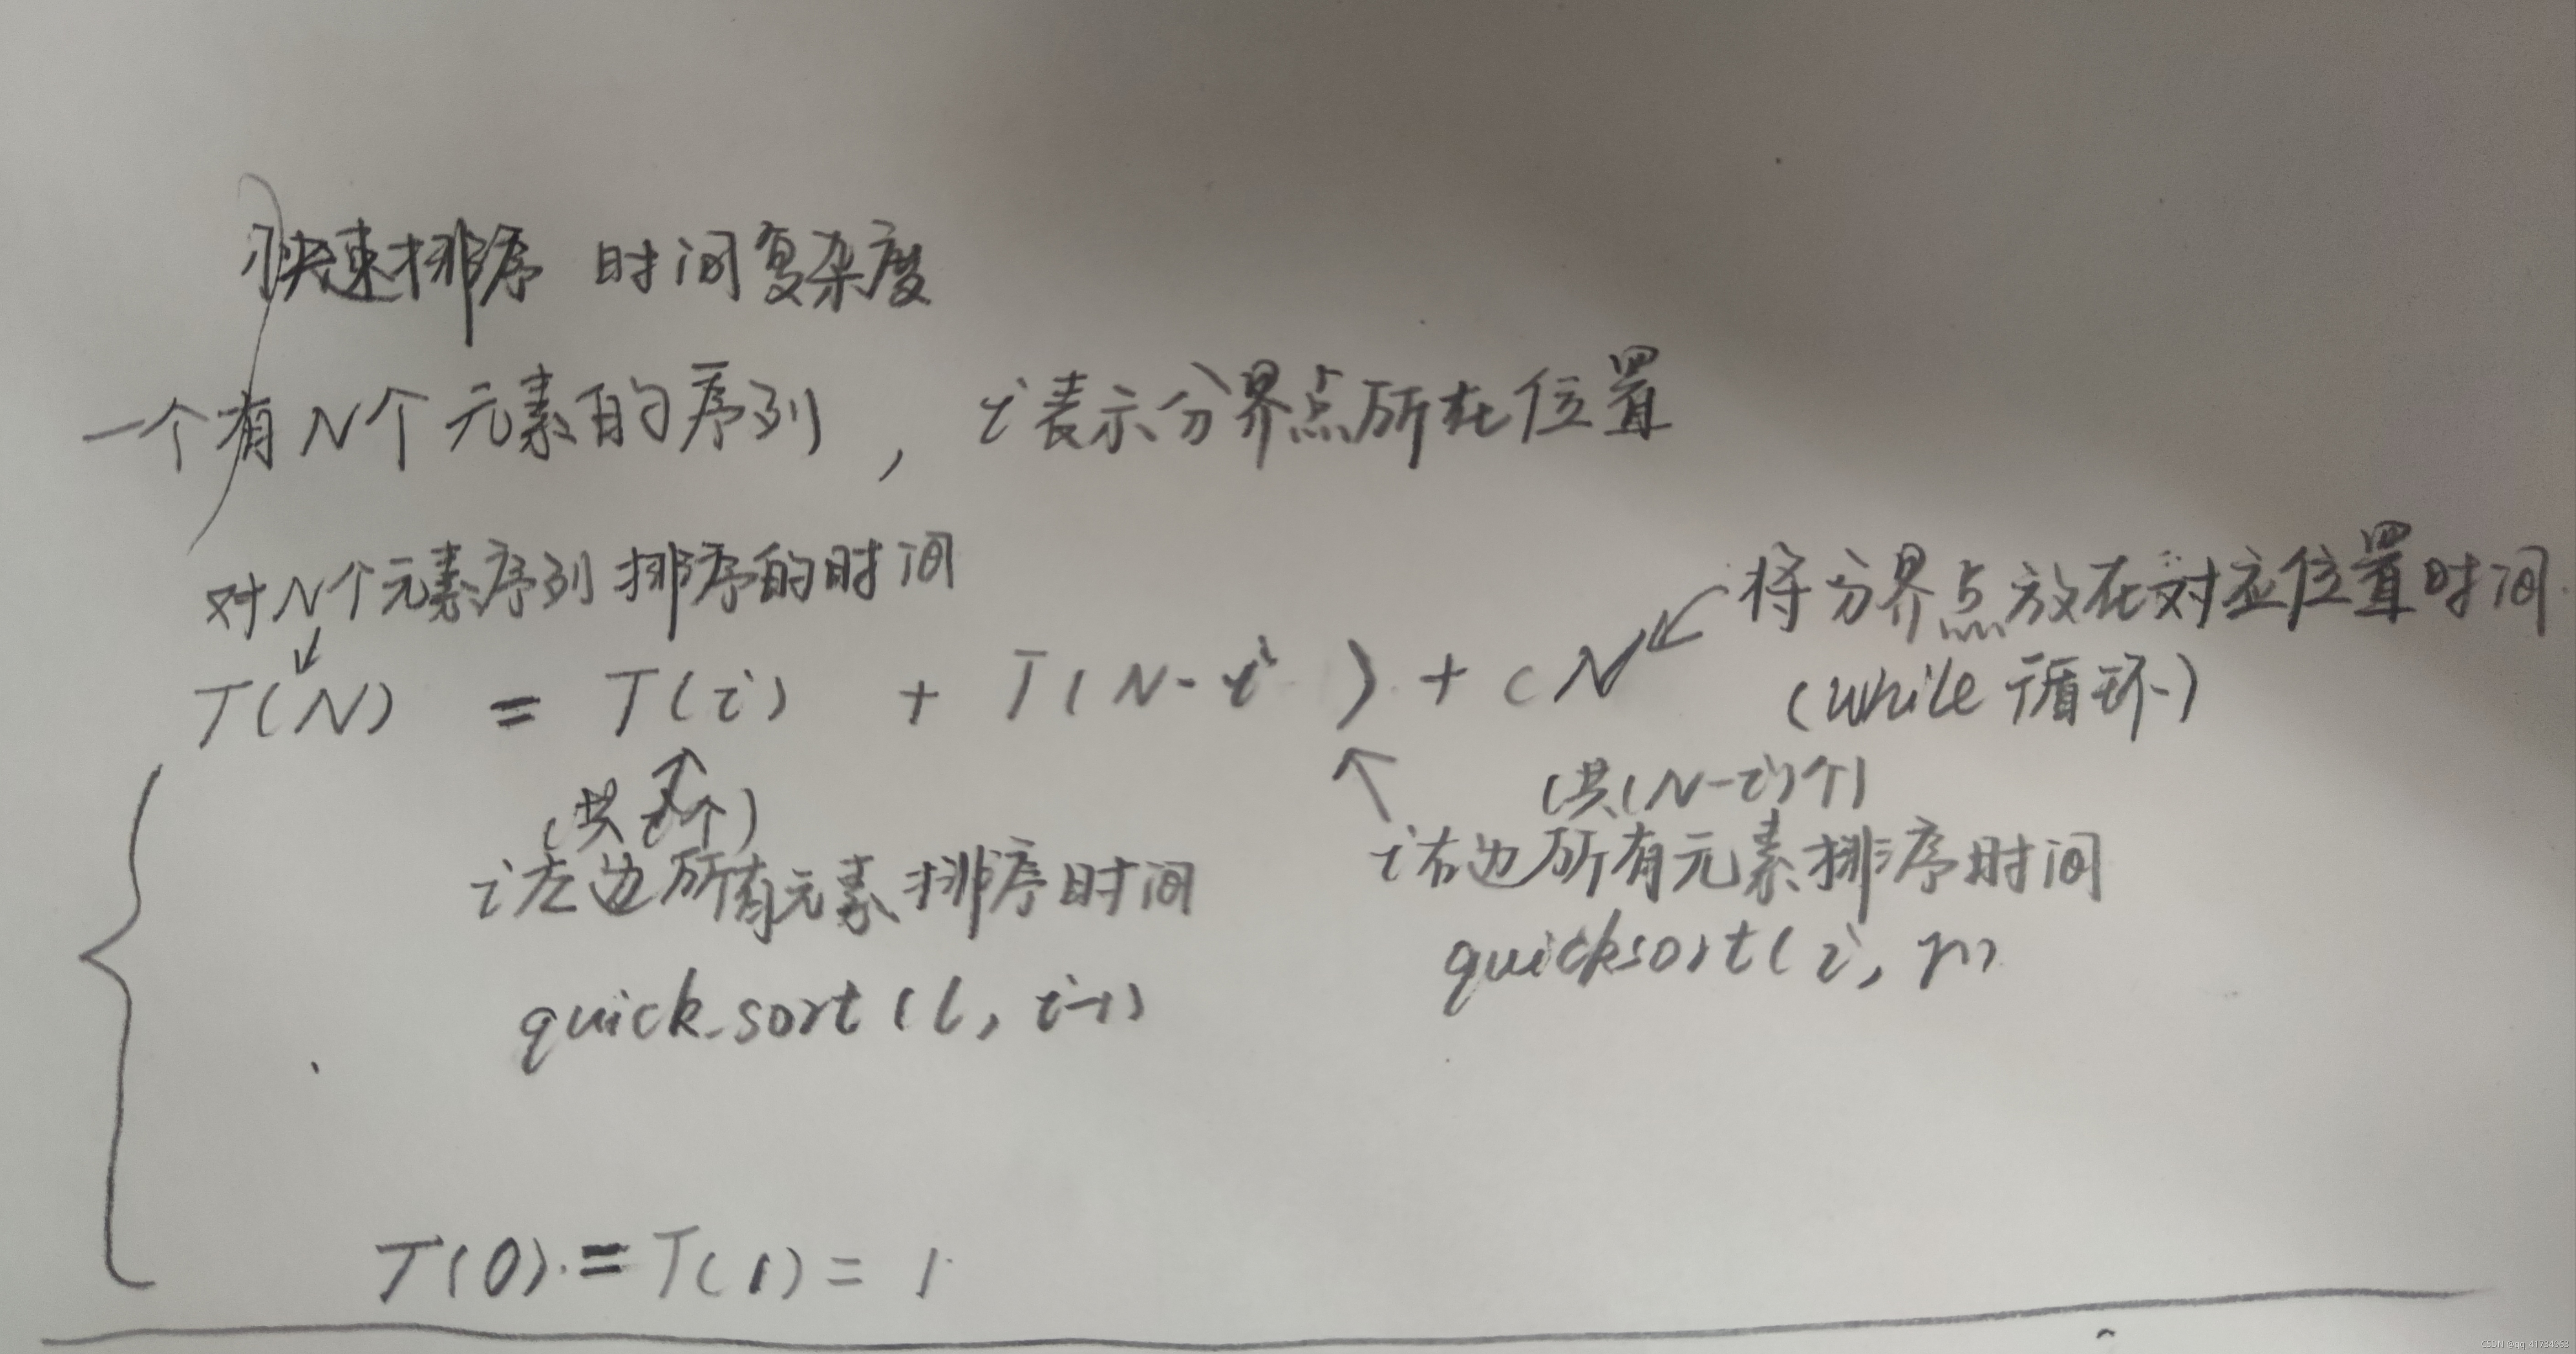 快速排序 时间复杂度
一个有N个元素的序列, i表示分界点所在位置
对N个元素序列排序的时间
将分界点放在对应位置时间.
(while 循环)
T(N) = T(i) + T(N-i) + CN
(共i个)
i左边所有元素排序时间
quick_sort(l, i-1)
(共(N-i)个)
i右边所有元素排序时间
quicksort(i, r)
T(0) = T(1) = 1
CSDN @qq_41734963